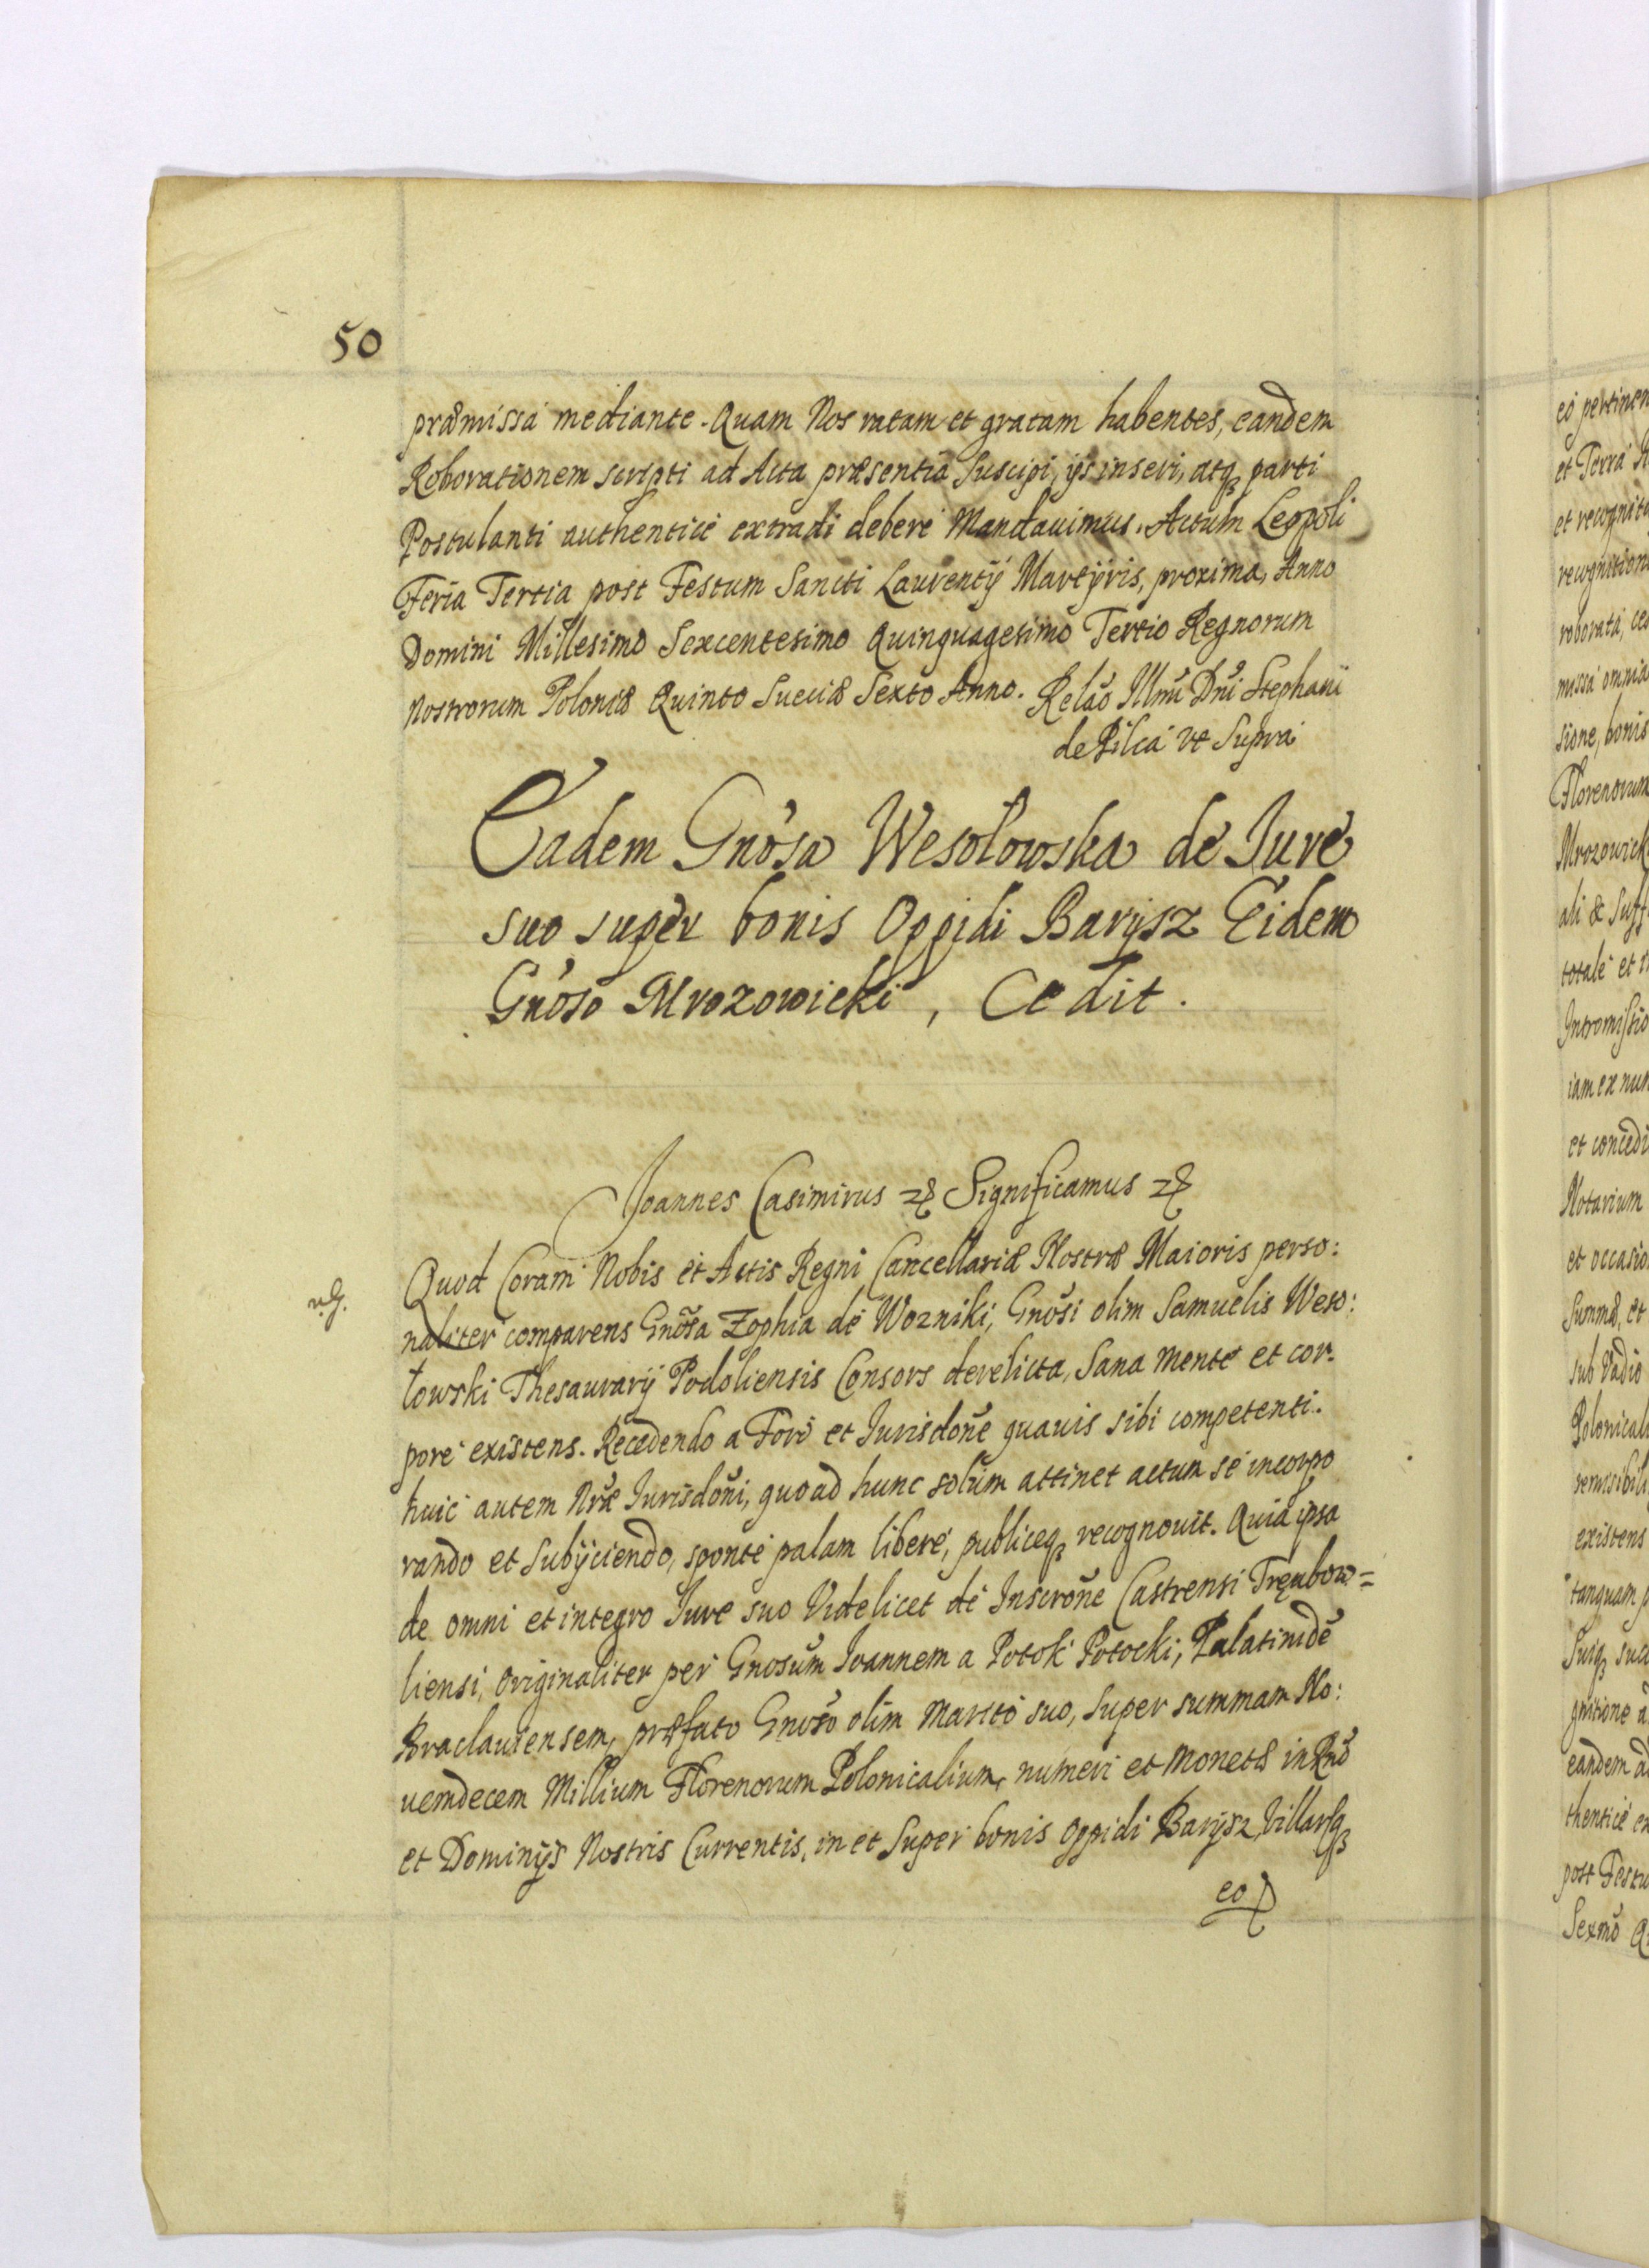 50
præmissa mediante. Quam Nos ratam et gratam habentes, eandem
Roborationem scripti ad Acta præsentia Suscipi, ijs inseri, atqꝫ parti
Postulanti authenticè extradi debere Mandauimus. Actum Leopoli
Feria Tertia post Festum Sancti Laurentij Martÿris, proxima, Anno
Domini Millesimo Sexcentesimo Quinquagesimo Tertio Regnorum
nostrorum Poloniæ Quinto Sueciæ Sexto Anno. Relaõ Illmi Dñi Stephani
de Pilca vt Supra
Eadem Gnosa Wesołowska de Iure
suo super bonis Oppidi Barÿsz Eidem
Gnoso Mrozowicki, Cedit.
Joannes Casimirus Significamus
Quod Coram Nobis et Actis Regni Cancellariæ Nostræ Maioris perso:
naliter comparens Gnõsa Zophia de Wozniki, Gnõsi olim Samuelis Weso:
łowski Thesaurarij Podoliensis Consors derelicta, Sana mente et cor-
pore existens. Recedendo a Foro et Iurisdoñe quauis sibi competenti.
huic autem Nræ Iurisdoñi, quoad hunc solùm attinet actum se incorpo
rando et Subijciendo, sponte palam libere, publiceqꝫ recognouit. Quia ipsa
de omni et integro Iure suo Videlicet de Inscroñe Castrensi Trębow=
liensi, Originaliter per Gnosum Ioannem a Potok Potocki, Palatinidẽ
Braclauiensem, præfato Gnoso olim Marito suo, Super summam No:
uemdecem Millium Florenorum Polonicalium, numeri et monetæ in Rno
et Dominijs Nostris Currentis, in et Super bonis Oppidi Barÿsz, Villarqꝫ
eo
eo pertinen
et Terra
et recognit
recognition
roborata,
missa omnia
sione, bonis
Florenorum
Mrozowick
ali & Suff
totale et
Intromissio
iam ex nun
et concedi
Notarium
et occasio
Summæ, et
sub Vadio
Polonicali
remisibili
existens
tanquam
Suiqꝫ succ
gnitione
eandem ad
thentice ex
post Festu
Sexmo